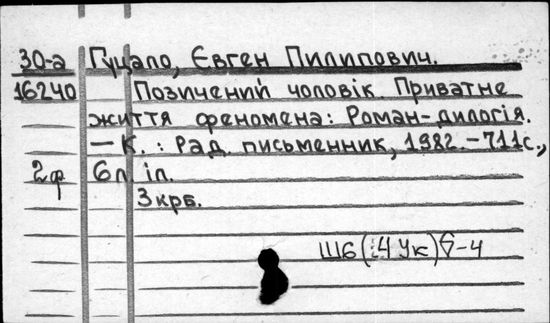 30-а Гуцало, Євген Пилипович.
16240 Позичений чоловік. Приватне
життя феномена: Роман-дилогія.
— К.: Рад. письменник, 1982 - 711с.,
2ф 6л іл.
3 крб.
Ш6(4Ук)6-4